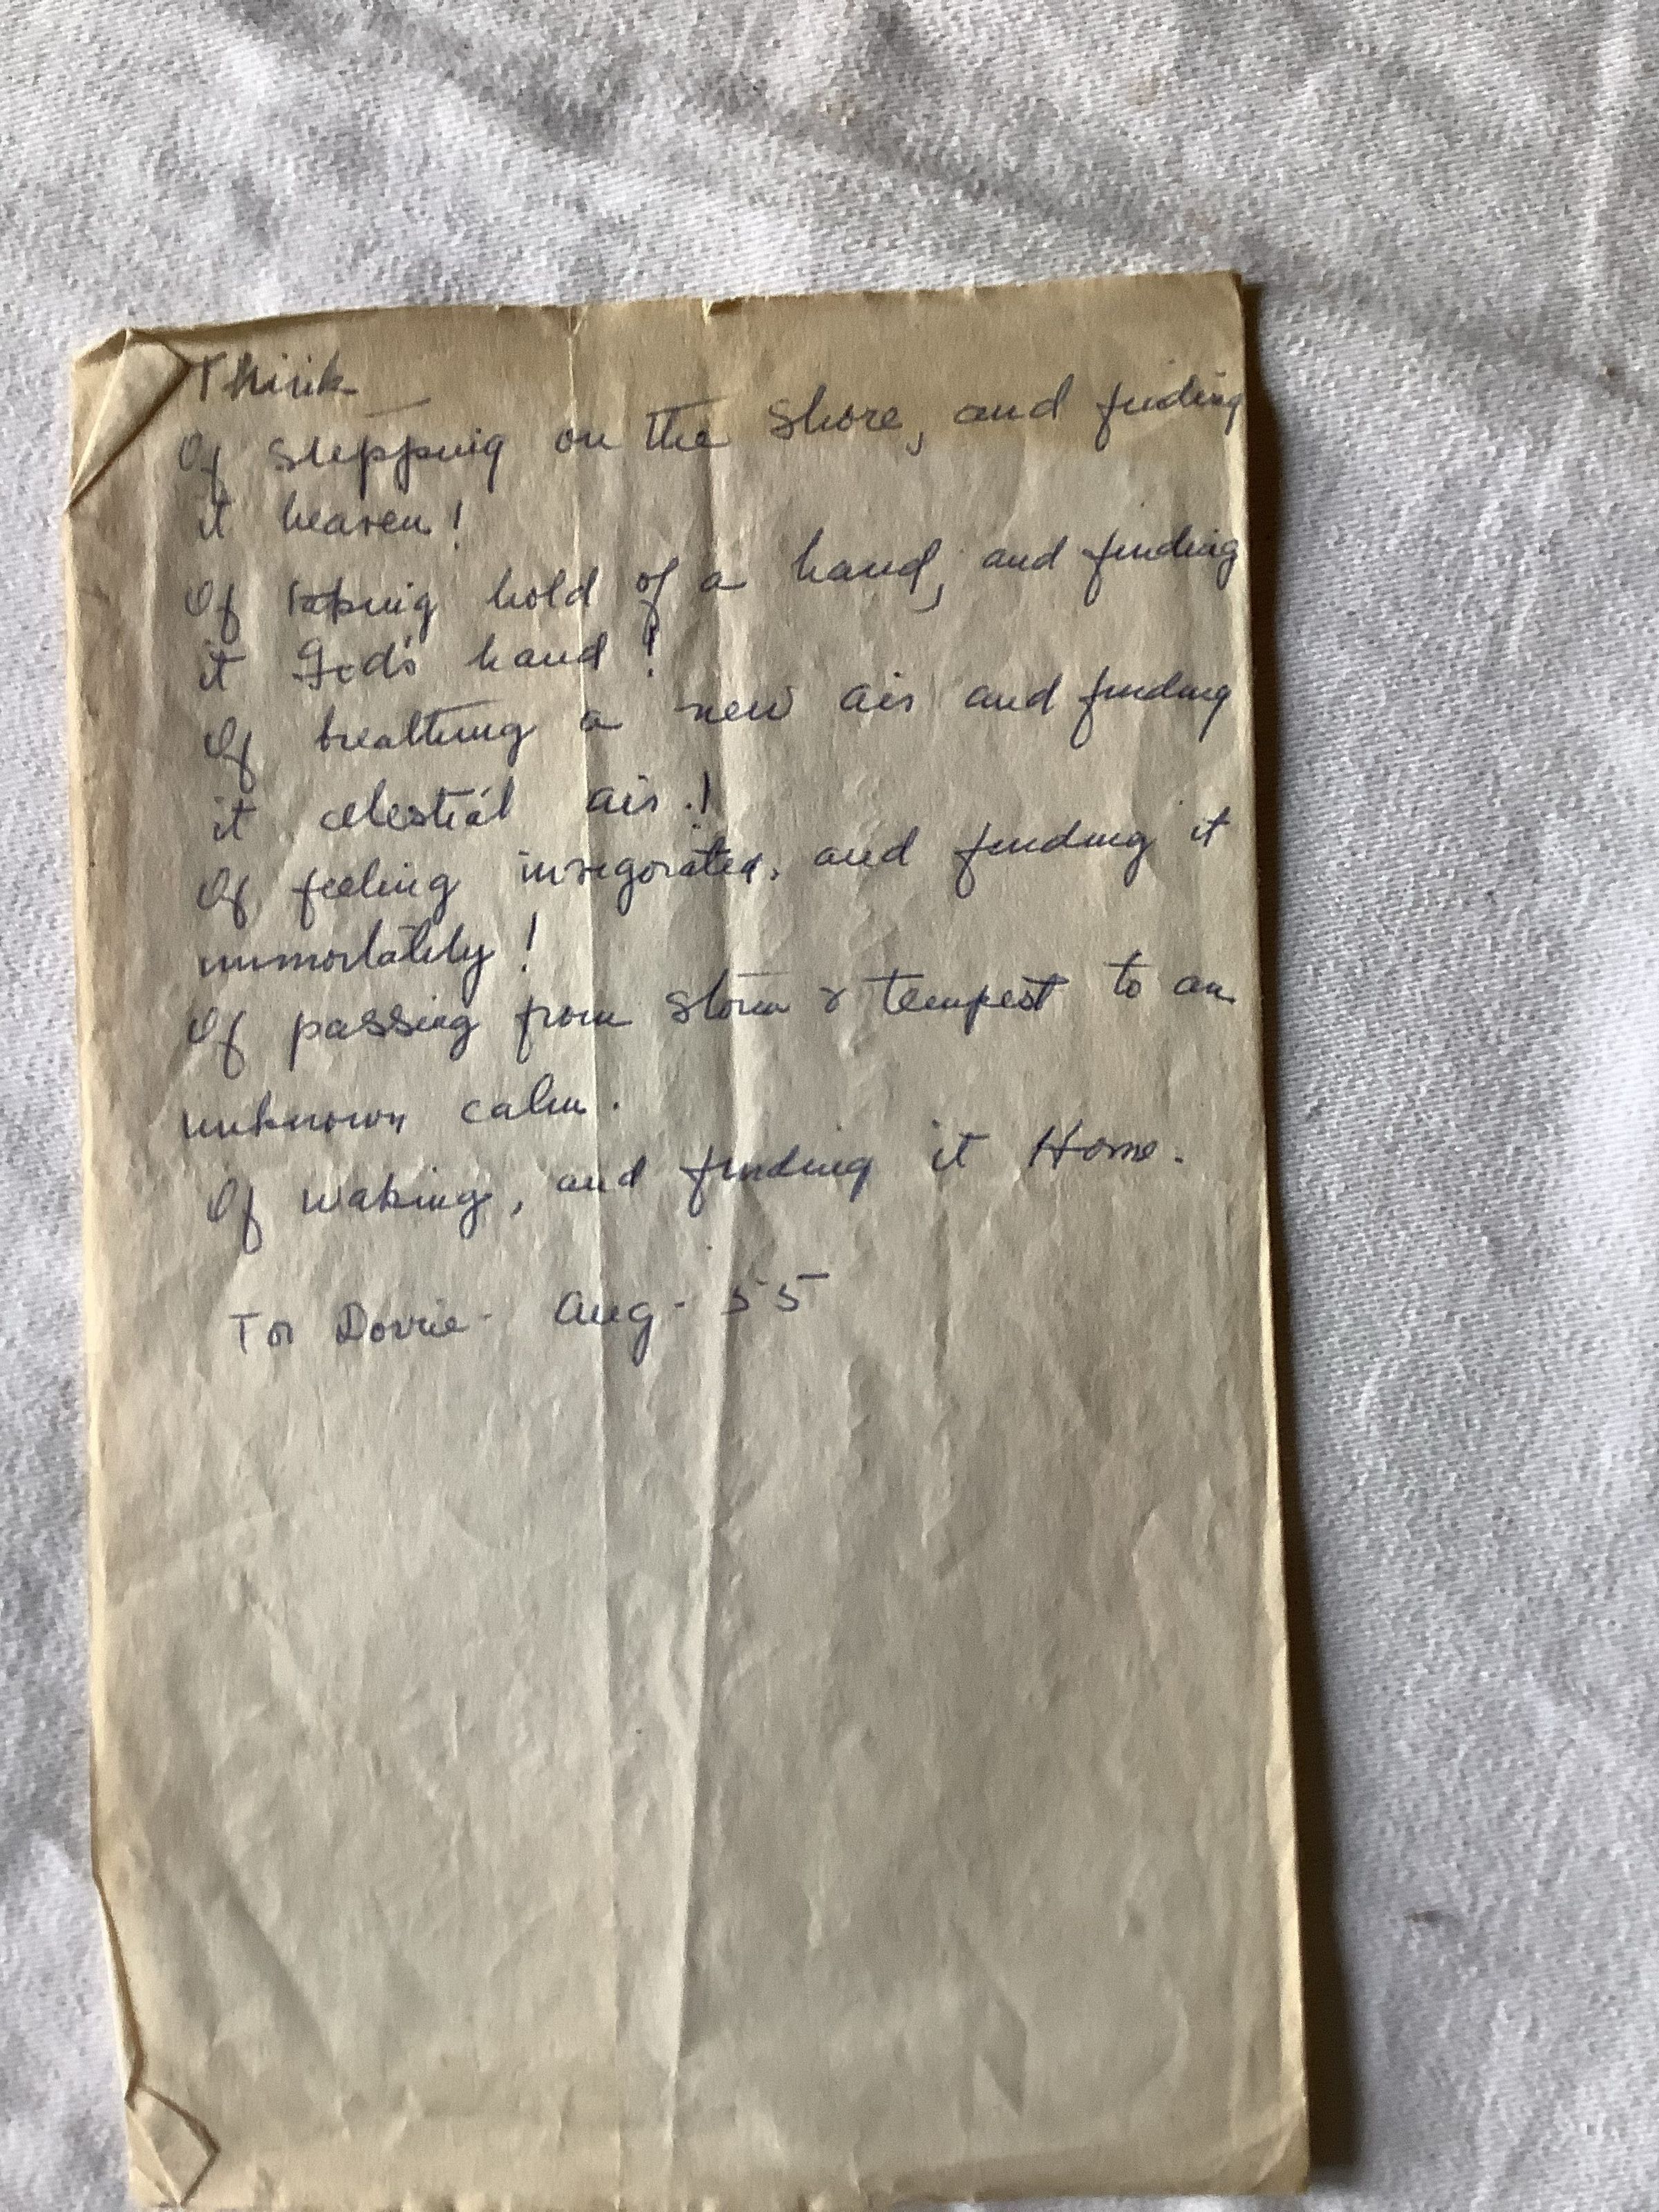 Think—
Of stepping on the shore, and finding
it heaven!
Of taking hold of a hand, and finding
it God's hand!
Of breathing a new air and finding
it celestial air!
Of feeling invigorated, and finding it
immortality!
Of passing from storm & tempest to an
unknown calm.
Of waking, and finding it Home.
For Dorrie - Aug - 55